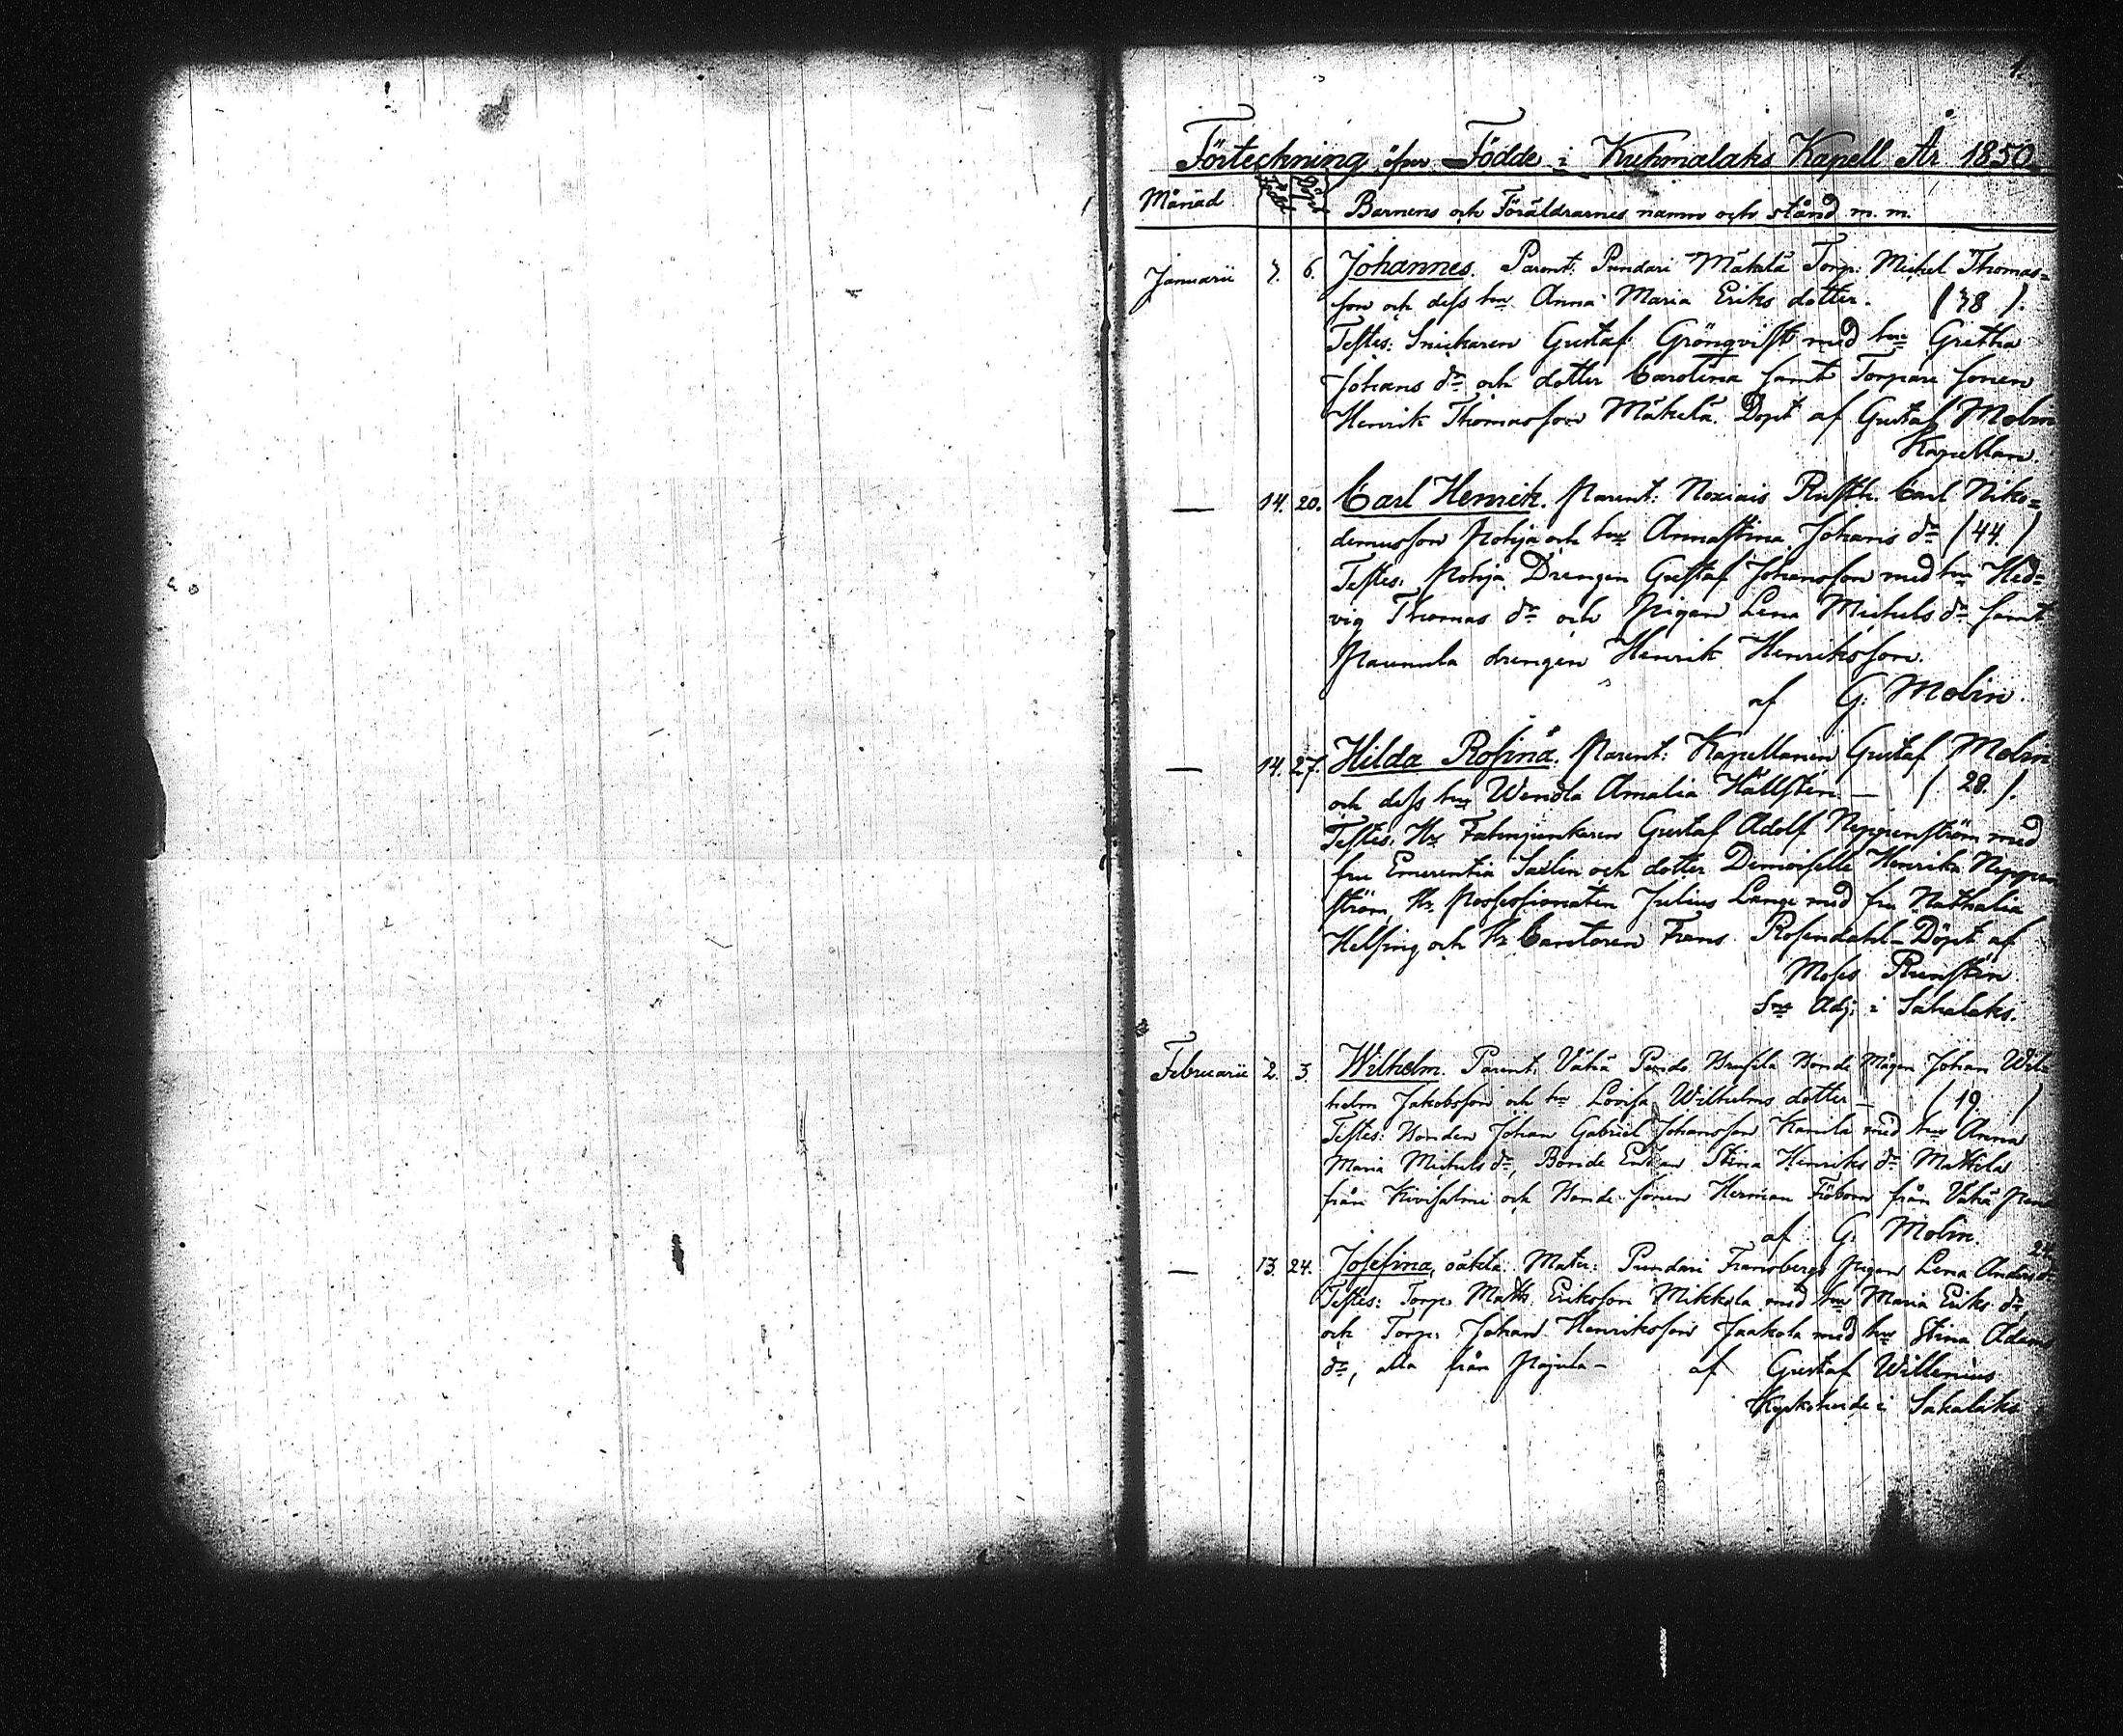 1.
Förteckning öfver Födde i Kuhmalaks Kapell År 1850.
Månad Född Döpt Barnens och Föräldrarnes namn och stånd m. m.
Januarii 3. 6. Johannes. Parent: Pundari Mäkelä Torp: Michel Thomas=
son och dess hu Anna Maria Eriks dotter. (38).
Testes: Snickaren Gustaf Grönqvist med hu Gretha
Johans dr och dotter Carolina samt Torpare sonen
Henrik Thomasson Mäkelä. Döpt af Gustaf Molin
Kapellan.
— 14. 20. Carl Henrik. Parent: Rusth. Carl Niko=
demusson Pohja och hu Annastina Johans dr (44.)
Testes: Pohja Drengen Gustaf Johansson med hu Hed=
vig Thomas dr och Pigan Lena Michels dr samt
Paunula drengen Henrik Henriksson.
af G. Molin.
— 14. 27. Hilda Rosina. Parent: Kapellanen Gustaf Molin
och dess hu Wendla Amalia Hällsten — (28.).
Testes: Hr Fahnjunkaren Gustaf Adolf Neppenström med
fru Emerentia Saxlin och dotter Demoiselle Henrika Neppen
ström, Hr Possessionaten Julius Lange med fru Nathalia
Helsing och Hr Cantoren Frans Rosendahl — Döpt af
Moses Runstén
Adj: i Sahalaks.
Februarii 2. 3. Wilhelm. Parent: Vähä Pento Bonde Mågen Johan Wil-
helm Jakobsson och hu Lovisa Wilhelms dotter — (19.)
Testes: Bonden Johan Gabriel Johansson med hu Anna
Maria Michels dr, Bonde Enkan Stina Henriks dr Mattila
från Kivisalmi och Bonde sonen Herman från Vähä
af G. Molin.
24.
— 13. 24. Josefina, oäkta. Mater: Pundari Fransberg Pigan Lena Anders dr
Testes: Torp. Matth. Eriksson Mikkola med hu Maria Eriks dr
och Torp. Johan Henriksson Jaakola med hu Stina Adams
dr, alla från Pajula — af Gustaf Willenius
Kyrkoherde i Sahalaks